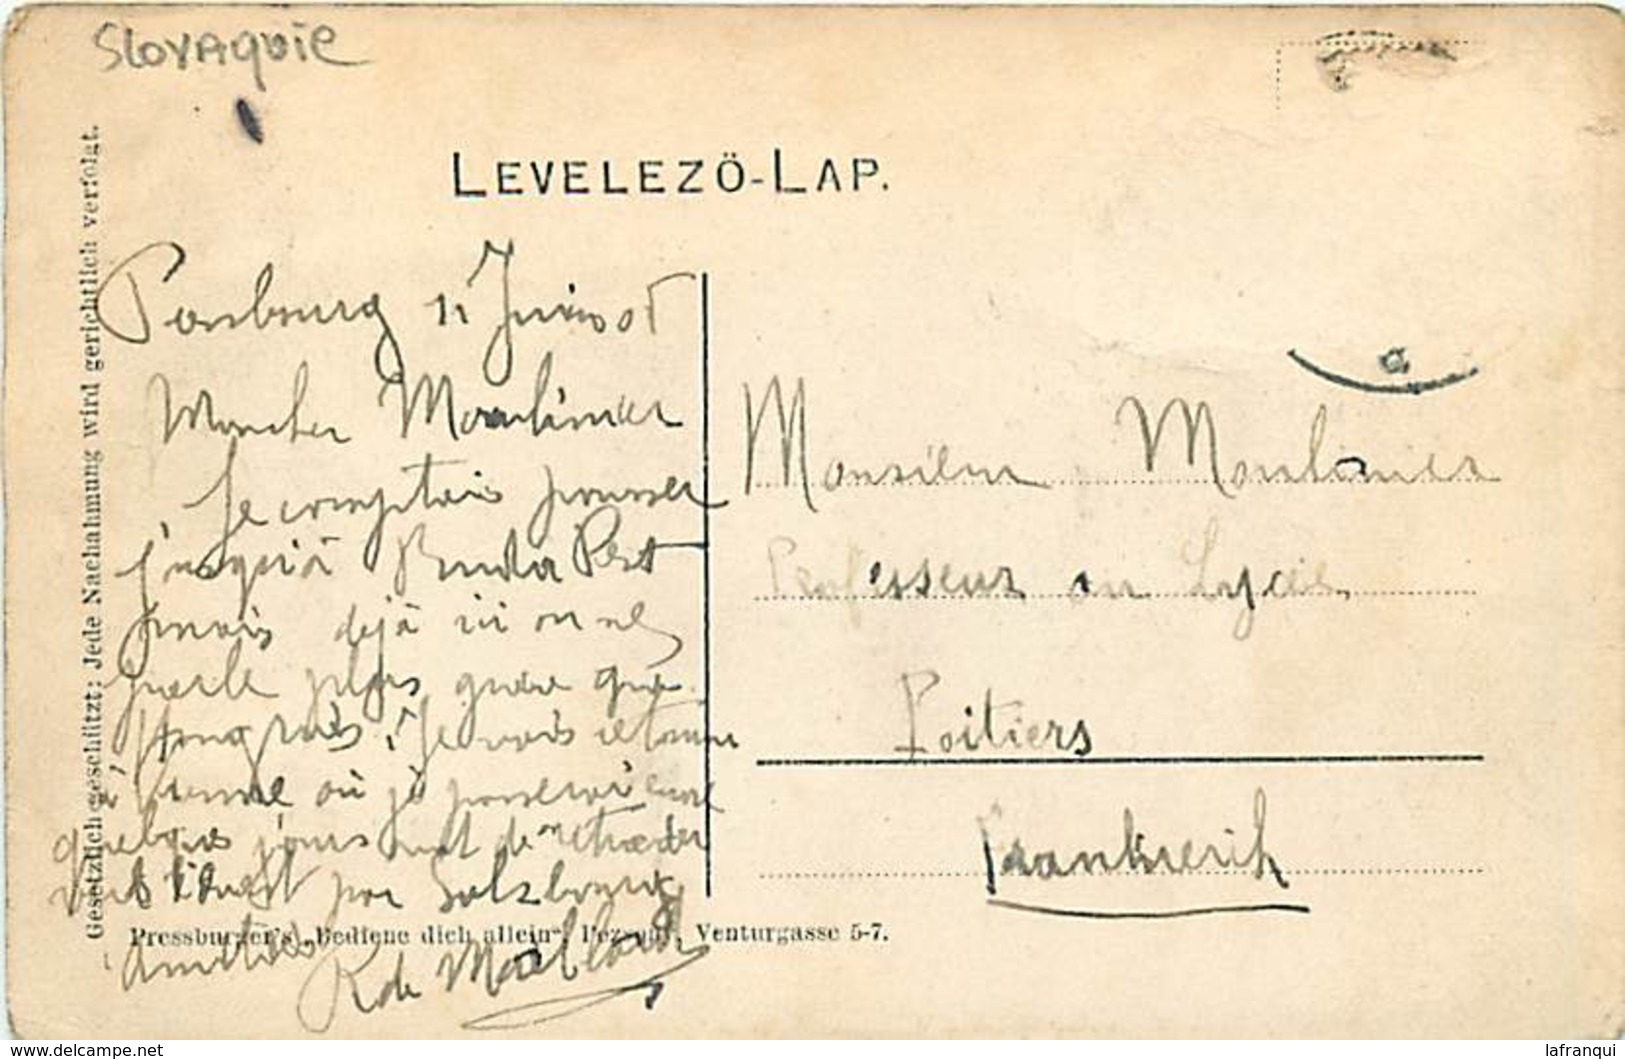 Slovaquie
LEVELEZÖ-LAP.
Gesetzlich geschützt: Jede Nachahmung wird gerichtlich verfolgt.
11 Juin 05
Mon cher Moulinier
Je comptais pousser
jusqu'à Buda Pest
mais déjà ici on ne
parle plus guère que
Hongrois. Je vais retourner
à Vienne où je passerai encore
quelques jours avant de rétrograder
vers l'Ouest par Salzbourg
Amitiés
R de Maillard
Monsieur Moulinier
Professeur au Lycée
Poitiers
Frankreich
Pressburger's „Bediene dich allein“, Pozsony, Venturgasse 5-7.
www.delcampe.net
lafranqui